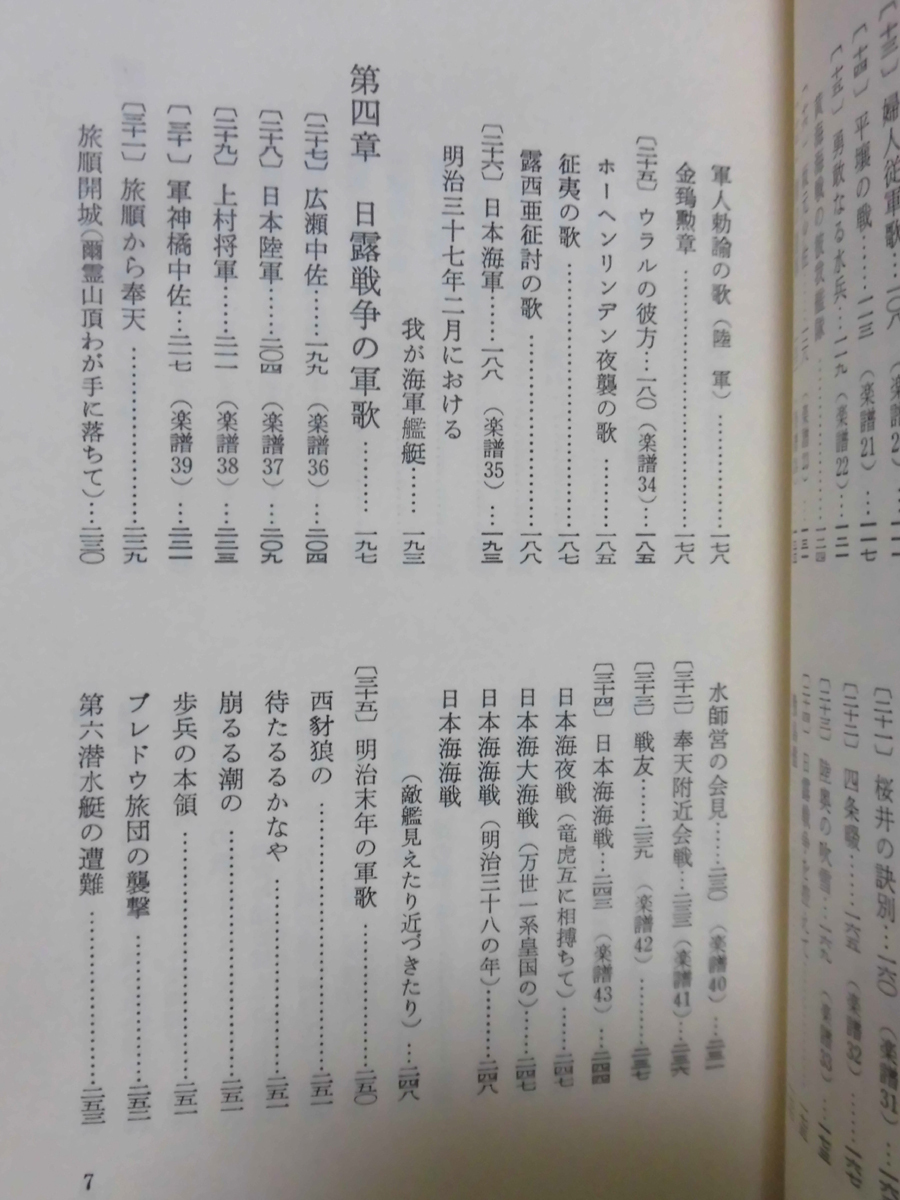 〔十三〕 婦人従軍歌
〔十四〕 平壌の戦…一一三 (楽譜21)…一一七
〔十五〕 勇敢なる水兵…一一九 (楽譜22)…一二一
〔二十一〕 桜井の訣別…一六〇 (楽譜31)
〔二十二〕 四条畷……一六五 (楽譜32)……一六七
〔二十三〕 陸奥の吹雪…一六九 (楽譜33)
軍人勅諭の歌(陸 軍)……………一七八
金鵄勲章……………………………一七八
〔二十五〕 ウラルの彼方…一八〇(楽譜34)…一八五
ホーヘンリンデン夜襲の歌…………一八五
征夷の歌……………………………一八七
露西亜征討の歌……………………一八八
〔二十六〕 日本海軍……一八八 (楽譜35)…一九三
明治三十七年二月における
我が海軍艦艇……一九三
第四章 日露戦争の軍歌…………一九七
〔二十七〕 広瀬中佐……一九九 (楽譜36)…二〇四
〔二十八〕 日本陸軍……二〇四 (楽譜37)…二〇九
〔二十九〕 上村将軍……二一一 (楽譜38)…二二三
〔三十〕 軍神橘中佐…二一七 (楽譜39)…二二一
〔三十一〕 旅順から奉天……………………二二九
旅順開城(爾霊山頂わが手に落ちて)…二三〇
水師営の会見……二三〇 (楽譜40)……二三一
〔三十二〕 奉天附近会戦…二三三 (楽譜41)…二三六
〔三十三〕 戦友……二三九 (楽譜42)………二三七
〔三十四〕 日本海海戦…二四三 (楽譜43)…二四四
日本海夜戦(竜虎互に相搏ちて)……二四七
日本海大海戦(万世一系皇国の)……二四七
日本海海戦(明治三十八の年)………二四八
日本海海戦
(敵艦見えたり近づきたり)…二四八
〔三十五〕 明治末年の軍歌……………二五〇
西豺狼の……………………………二五一
待たるるかなや……………………二五一
崩るる潮の…………………………二五一
歩兵の本領…………………………二五一
ブレドウ旅団の襲撃………………二五二
第六潜水艇の遭難…………………二五三
7